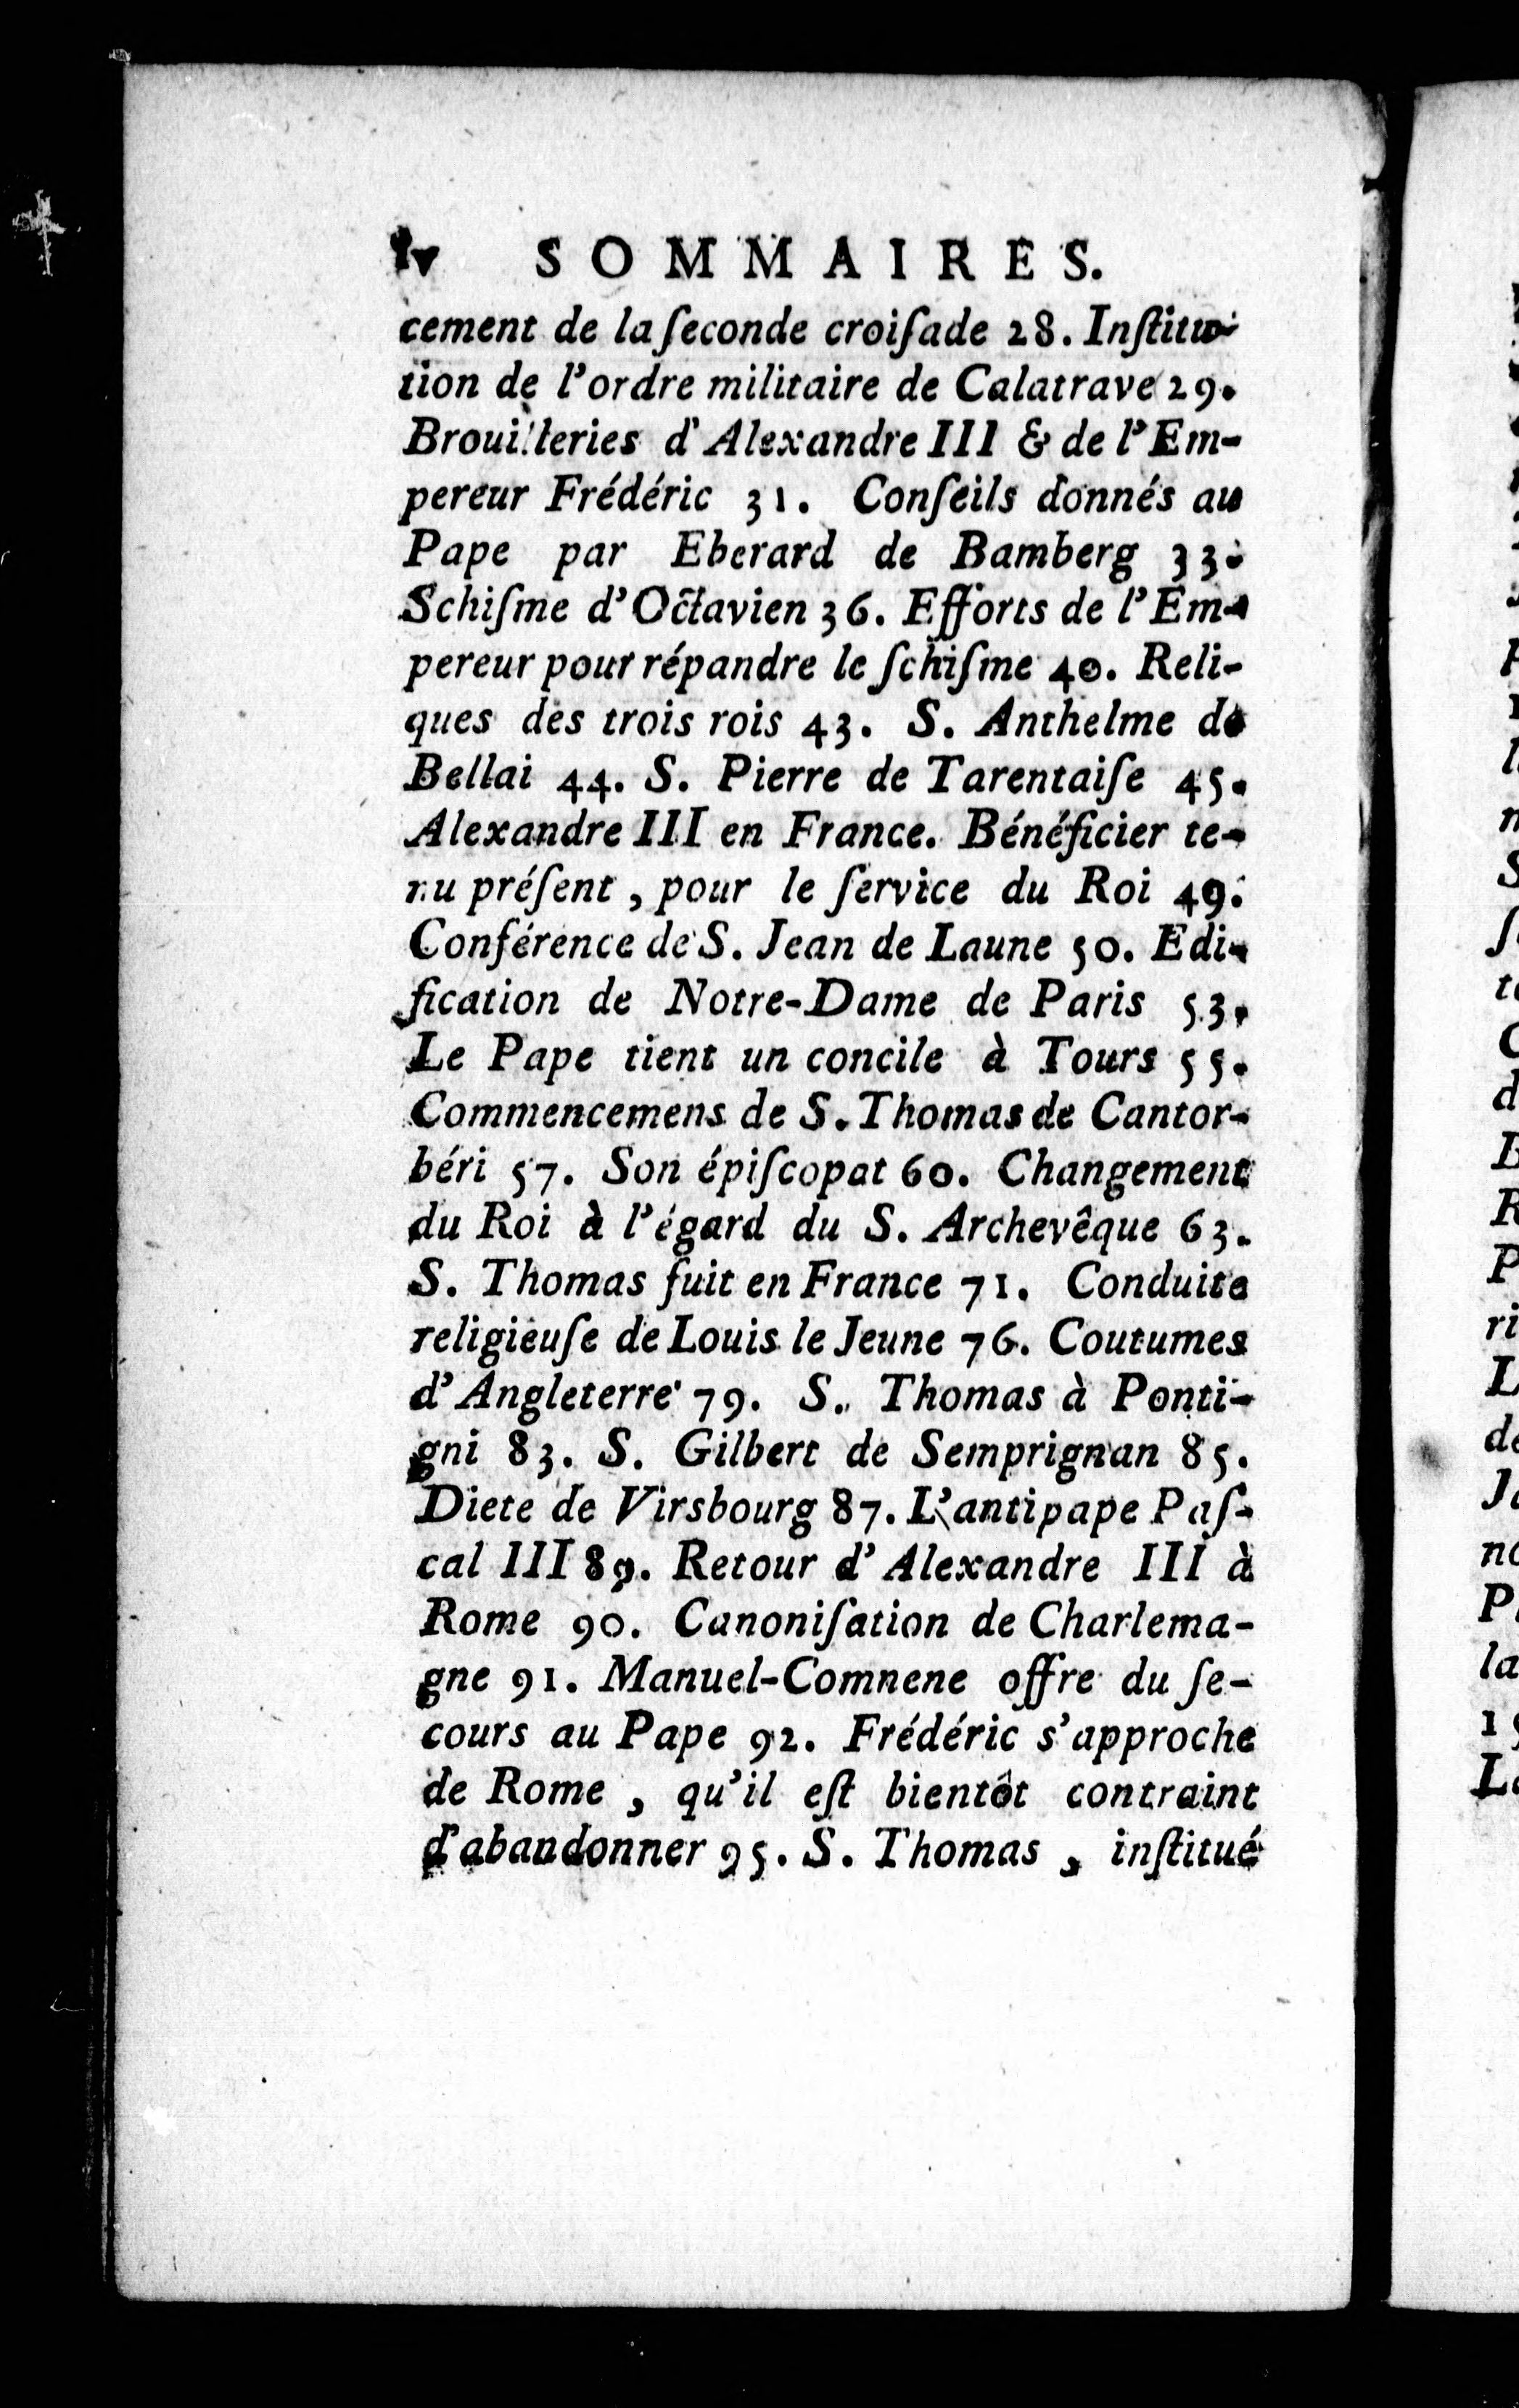 iv SOMMAIRES.
cement de la ſeconde croiſade 28. Inſtitu-
tion de l'ordre militaire de Calatrave 29.
Brouilleries d'Alexandre III & de l'Em-
pereur Frédéric 31. Conſeils donnés au
Pape par Eberard de Bamberg 33.
Schiſme d'Octavien 36. Efforts de l'Em-
pereur pour répandre le ſchiſme 40. Reli-
ques des trois rois 43. S. Anthelme de
Bellai 44. S. Pierre de Tarentaiſe 45.
Alexandre III en France. Bénéficier te-
nu préſent, pour le ſervice du Roi 49.
Conférence de S. Jean de Laune 50. Edi-
fication de Notre-Dame de Paris 53.
Le Pape tient un concile à Tours 55.
Commencemens de S. Thomas de Cantor-
béri 57. Son épiſcopat 60. Changement
du Roi à l'égard du S. Archevêque 63.
S. Thomas fuit en France 71. Conduite
religieuſe de Louis le Jeune 76. Coutumes
d'Angleterre 79. S. Thomas à Ponti-
gni 83. S. Gilbert de Semprignan 85.
Diete de Virsbourg 87. L'antipape Paſ-
cal III 89. Retour d'Alexandre III à
Rome 90. Canoniſation de Charlema-
gne 91. Manuel-Comnene offre du ſe-
cours au Pape 92. Frédéric s'approche
de Rome, qu'il eſt bientôt contraint
d'abandonner 95. S. Thomas, inſtitué